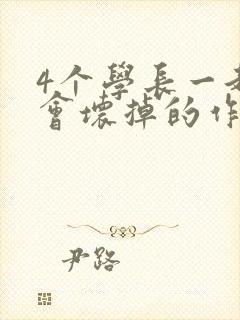 4个學長一
會壞掉的作
尹路